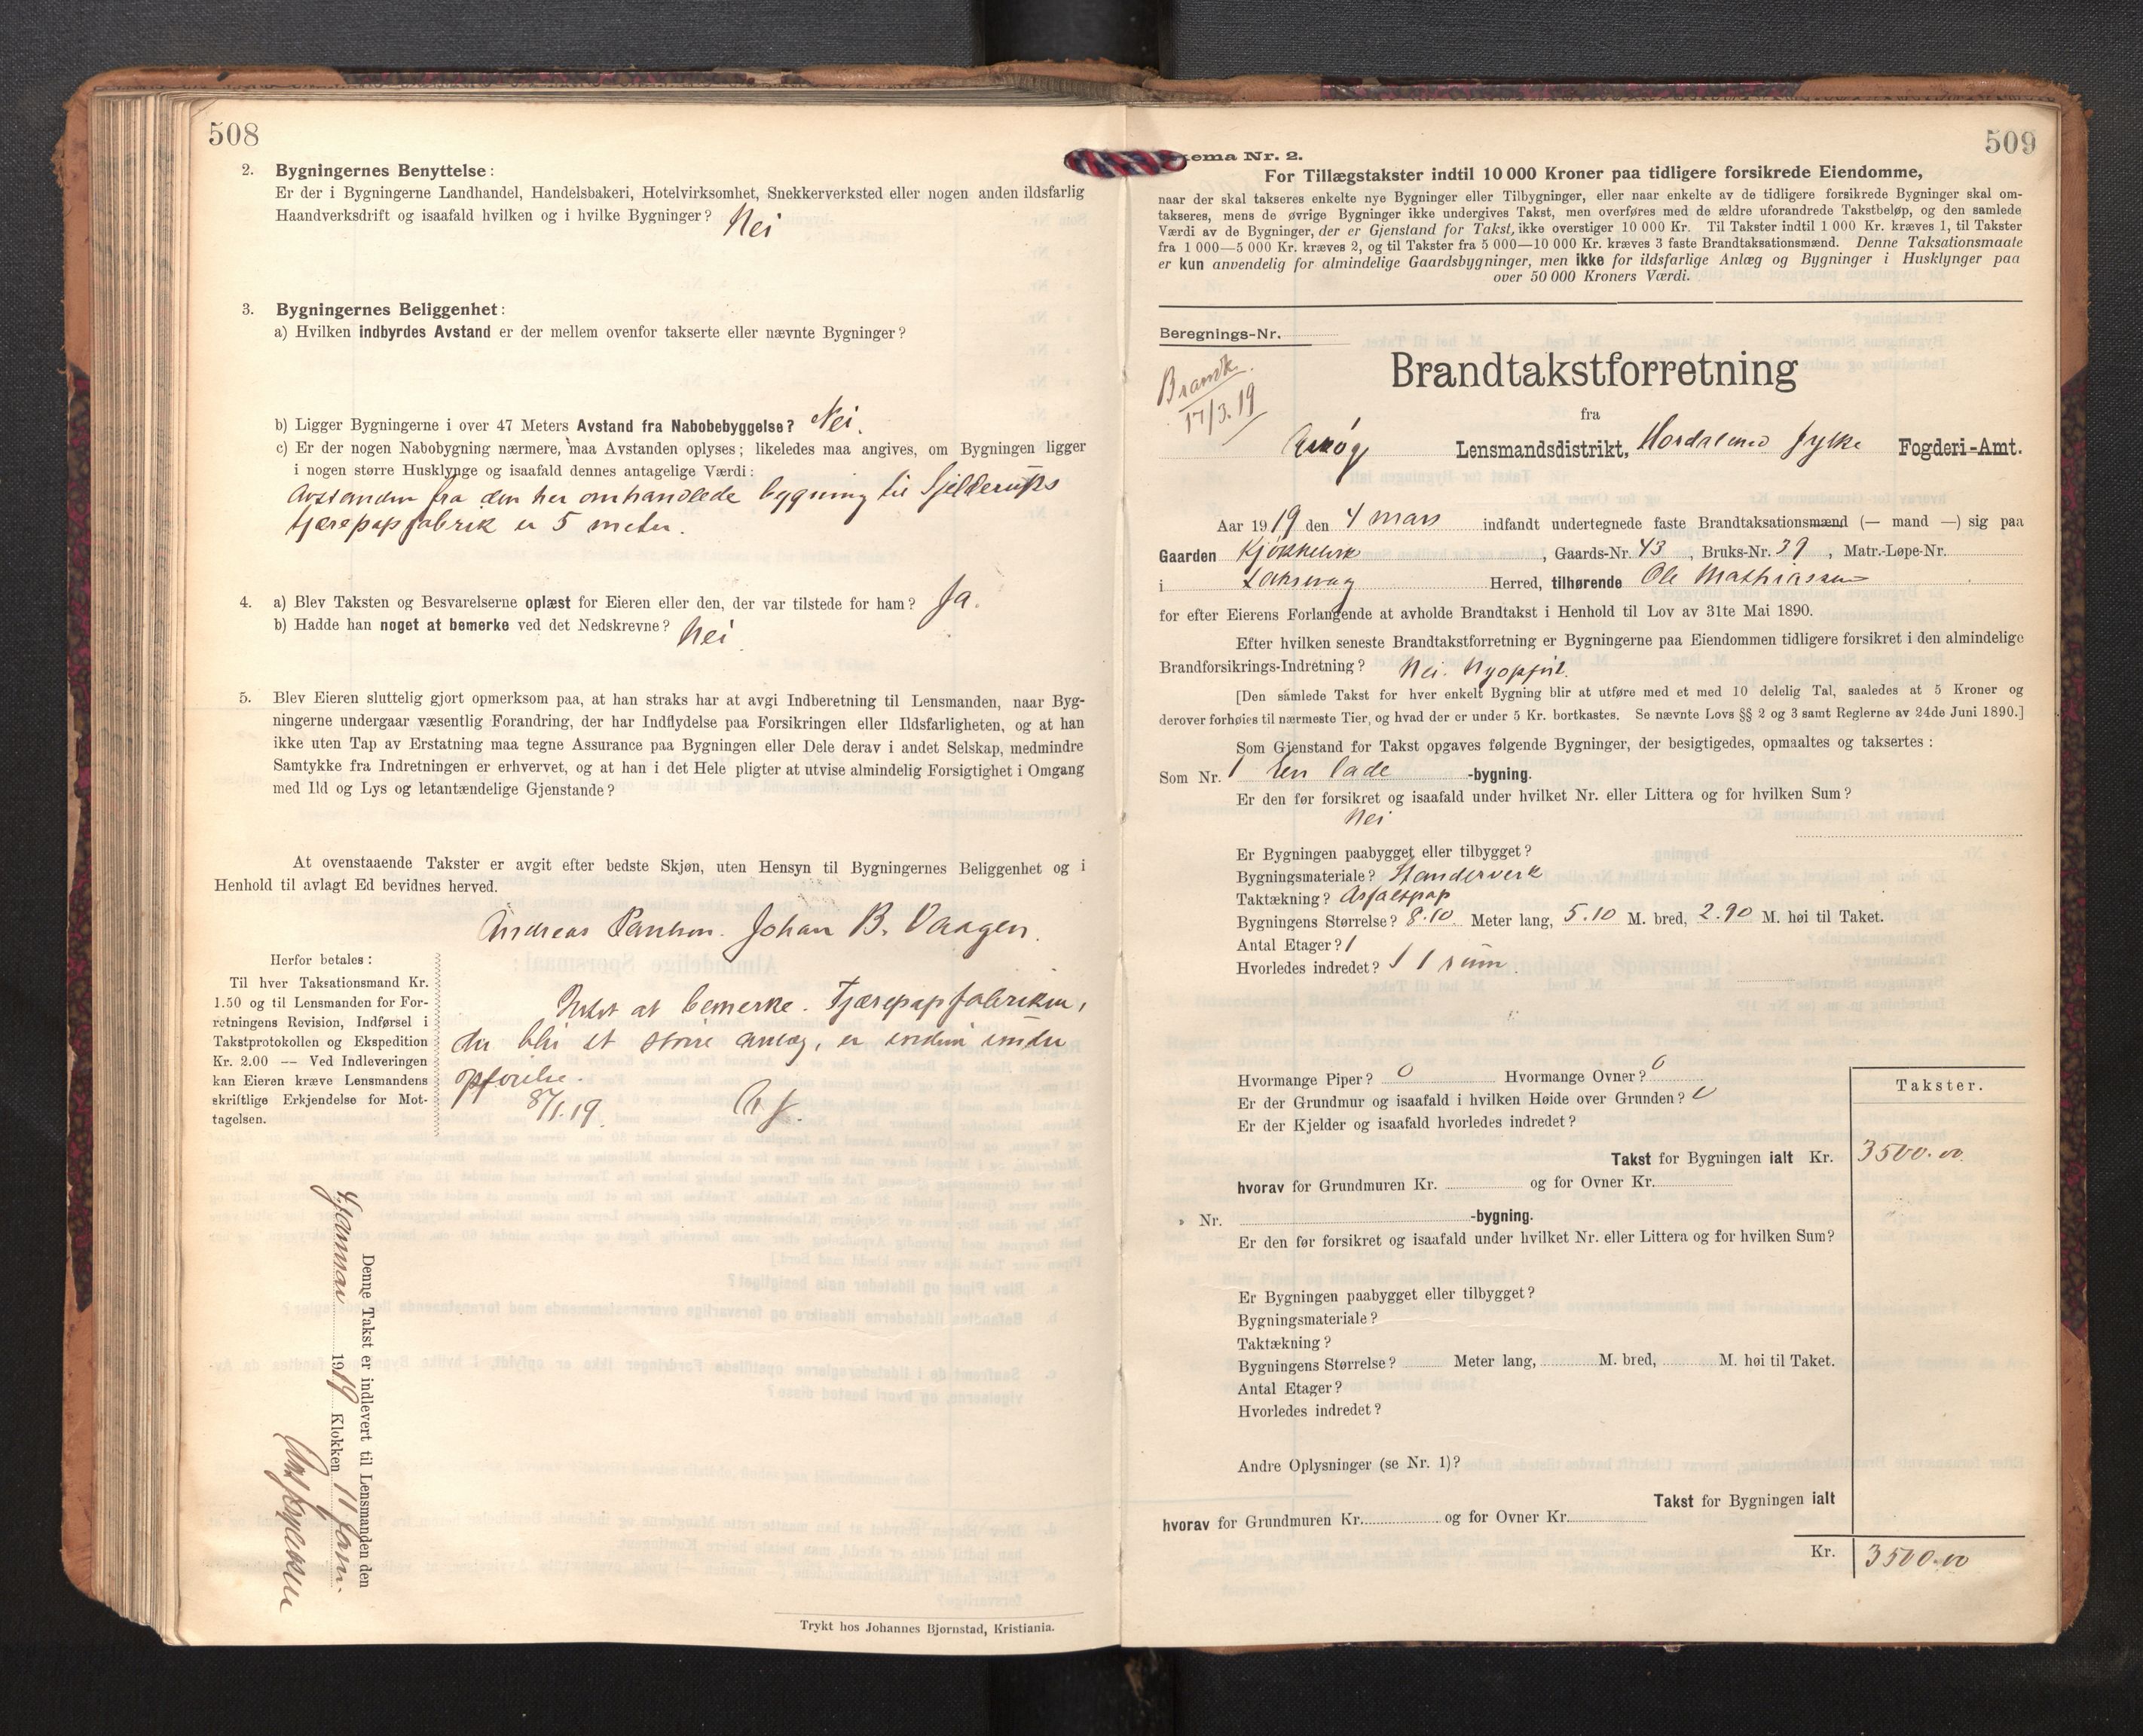 508
2. Bygningernes Benyttelse:
Er der i Bygningerne Landhandel, Handelsbakeri, Hotelvirksomhet, Snekkerverksted eller nogen anden ildsfarlig
Haandverksdrift og isaafald hvilken og i hvilke Bygninger? Nei
3. Bygningernes Beliggenhet:
a) Hvilken indbyrdes Avstand er der mellem ovenfor takserte eller nævnte Bygninger?
b) Ligger Bygningerne i over 47 Meters Avstand fra Nabobebyggelse? Nei.
c) Er der nogen Nabobygning nærmere, maa Avstanden oplyses; likeledes maa angives, om Bygningen ligger
i nogen større Husklynge og isaafald dennes antagelige Værdi:
Avstanden fra den her omhandlede bygning til Sjelderups
tjærepapfabrik er 5 meter.
4. a) Blev Taksten og Besvarelserne oplæst for Eieren eller den, der var tilstede for ham? Ja.
b) Hadde han noget at bemerke ved det Nedskrevne? Nei.
5. Blev Eieren sluttelig gjort opmerksom paa, at han straks har at avgi Indberetning til Lensmanden, naar Byg-
ningerne undergaar væsentlig Forandring, der har Indflydelse paa Forsikringen eller Ildsfarligheten, og at han
ikke uten Tap av Erstatning maa tegne Assurance paa Bygningen eller Dele derav i andet Selskap, medmindre
Samtykke fra Indretningen er erhvervet, og at han i det Hele pligter at utvise almindelig Forsigtighet i Omgang
med Ild og Lys og letantændelige Gjenstande?
At ovenstaaende Takster er avgit efter bedste Skjøn, uten Hensyn til Bygningernes Beliggenhet og i
Henhold til avlagt Ed bevidnes herved.
Andreas Johan B. Vaagen.
Herfor betales:
Til hver Taksationsmand Kr.
1.50 og til Lensmanden for For-
retningens Revision, Indførsel i
Takstprotokollen og Ekspedition
Kr. 2.00 — Ved Indleveringen
kan Eieren kræve Lensmandens
skriftlige Erkjendelse for Mot-
tagelsen.
Intet at bemerke. Tjærepapfabriken,
der blir et større anlæg, er endnu under
opførelse.
8/1.19.
Denne Takst er indlevert til Lensmanden den
4 Januar 1919 Klokken 11 form.
Trykt hos Johannes Bjørnstad, Kristiania.
509
ema Nr. 2.
For Tillægstakster indtil 10 000 Kroner paa tidligere forsikrede Eiendomme,
naar der skal takseres enkelte nye Bygninger eller Tilbygninger, eller naar enkelte av de tidligere forsikrede Bygninger skal om-
takseres, mens de øvrige Bygninger ikke undergives Takst, men overføres med de ældre uforandrede Takstbeløp, og den samlede
Værdi av de Bygninger, der er Gjenstand for Takst, ikke overstiger 10 000 Kr. Til Takster indtil 1 000 Kr. kræves 1, til Takster
fra 1 000—5 000 Kr. kræves 2, og til Takster fra 5 000—10 000 Kr. kræves 3 faste Brandtaksationsmænd. Denne Taksationsmaate
er kun anvendelig for almindelige Gaardsbygninger, men ikke for ildsfarlige Anlæg og Bygninger i Husklynger paa
over 50 000 Kroners Værdi.
Beregnings-Nr.
Brandk.
17/3.19
Brandtakstforretning
fra
Askøy Lensmandsdistrikt, Hordaland fylke Fogderi-Amt.
Aar 1919 den 4 mars indfandt undertegnede faste Brandtaksationsmænd (— mand —) sig paa
Gaarden Kjøkkelvik, Gaards-Nr. 43, Bruks-Nr. 39, Matr.-Løpe-Nr.
i Laksevåg Herred, tilhørende Ole Mathiassen
for efter Eierens Forlangende at avholde Brandtakst i Henhold til Lov av 31te Mai 1890.
Efter hvilken seneste Brandtakstforretning er Bygningerne paa Eiendommen tidligere forsikret i den almindelige
Brandforsikrings-Indretning? Nei. Nyopført.
[Den samlede Takst for hver enkelt Bygning blir at utføre med et med 10 delelig Tal, saaledes at 5 Kroner og
derover forhøies til nærmeste Tier, og hvad der er under 5 Kr. bortkastes. Se nævnte Lovs §§ 2 og 3 samt Reglerne av 24de Juni 1890.]
Som Gjenstand for Takst opgaves følgende Bygninger, der besigtigedes, opmaaltes og taksertes:
Som Nr. 1 En lade -bygning.
Er den før forsikret og isaafald under hvilket Nr. eller Littera og for hvilken Sum?
Nei
Er Bygningen paabygget eller tilbygget?
Bygningsmateriale? Standerverk
Taktækning? Asfaltpap
Bygningens Størrelse? 8.10 Meter lang, 5.10 M. bred, 2.90 M. høi til Taket.
Antal Etager? 1
Hvorledes indredet? I 1 rum.
Hvormange Piper? 0 Hvormange Ovner? 0
Er der Grundmur og isaafald i hvilken Høide over Grunden?
Er der Kjelder og isaafald hvorledes indredet?
Takster.
Takst for Bygningen ialt Kr. 3500.00
hvorav for Grundmuren Kr. og for Ovner Kr.
» Nr. -bygning.
Er den før forsikret og isaafald under hvilket Nr. eller Littera og for hvilken Sum?
Er Bygningen paabygget eller tilbygget?
Bygningsmateriale?
Taktækning?
Bygningens Størrelse? Meter lang, M. bred, M. høi til Taket.
Antal Etager?
Hvorledes indredet?
Andre Oplysninger (se Nr. 1)?
Takst for Bygningen ialt
hvorav for Grundmuren Kr. og for Ovner Kr.
Kr. 3500.00